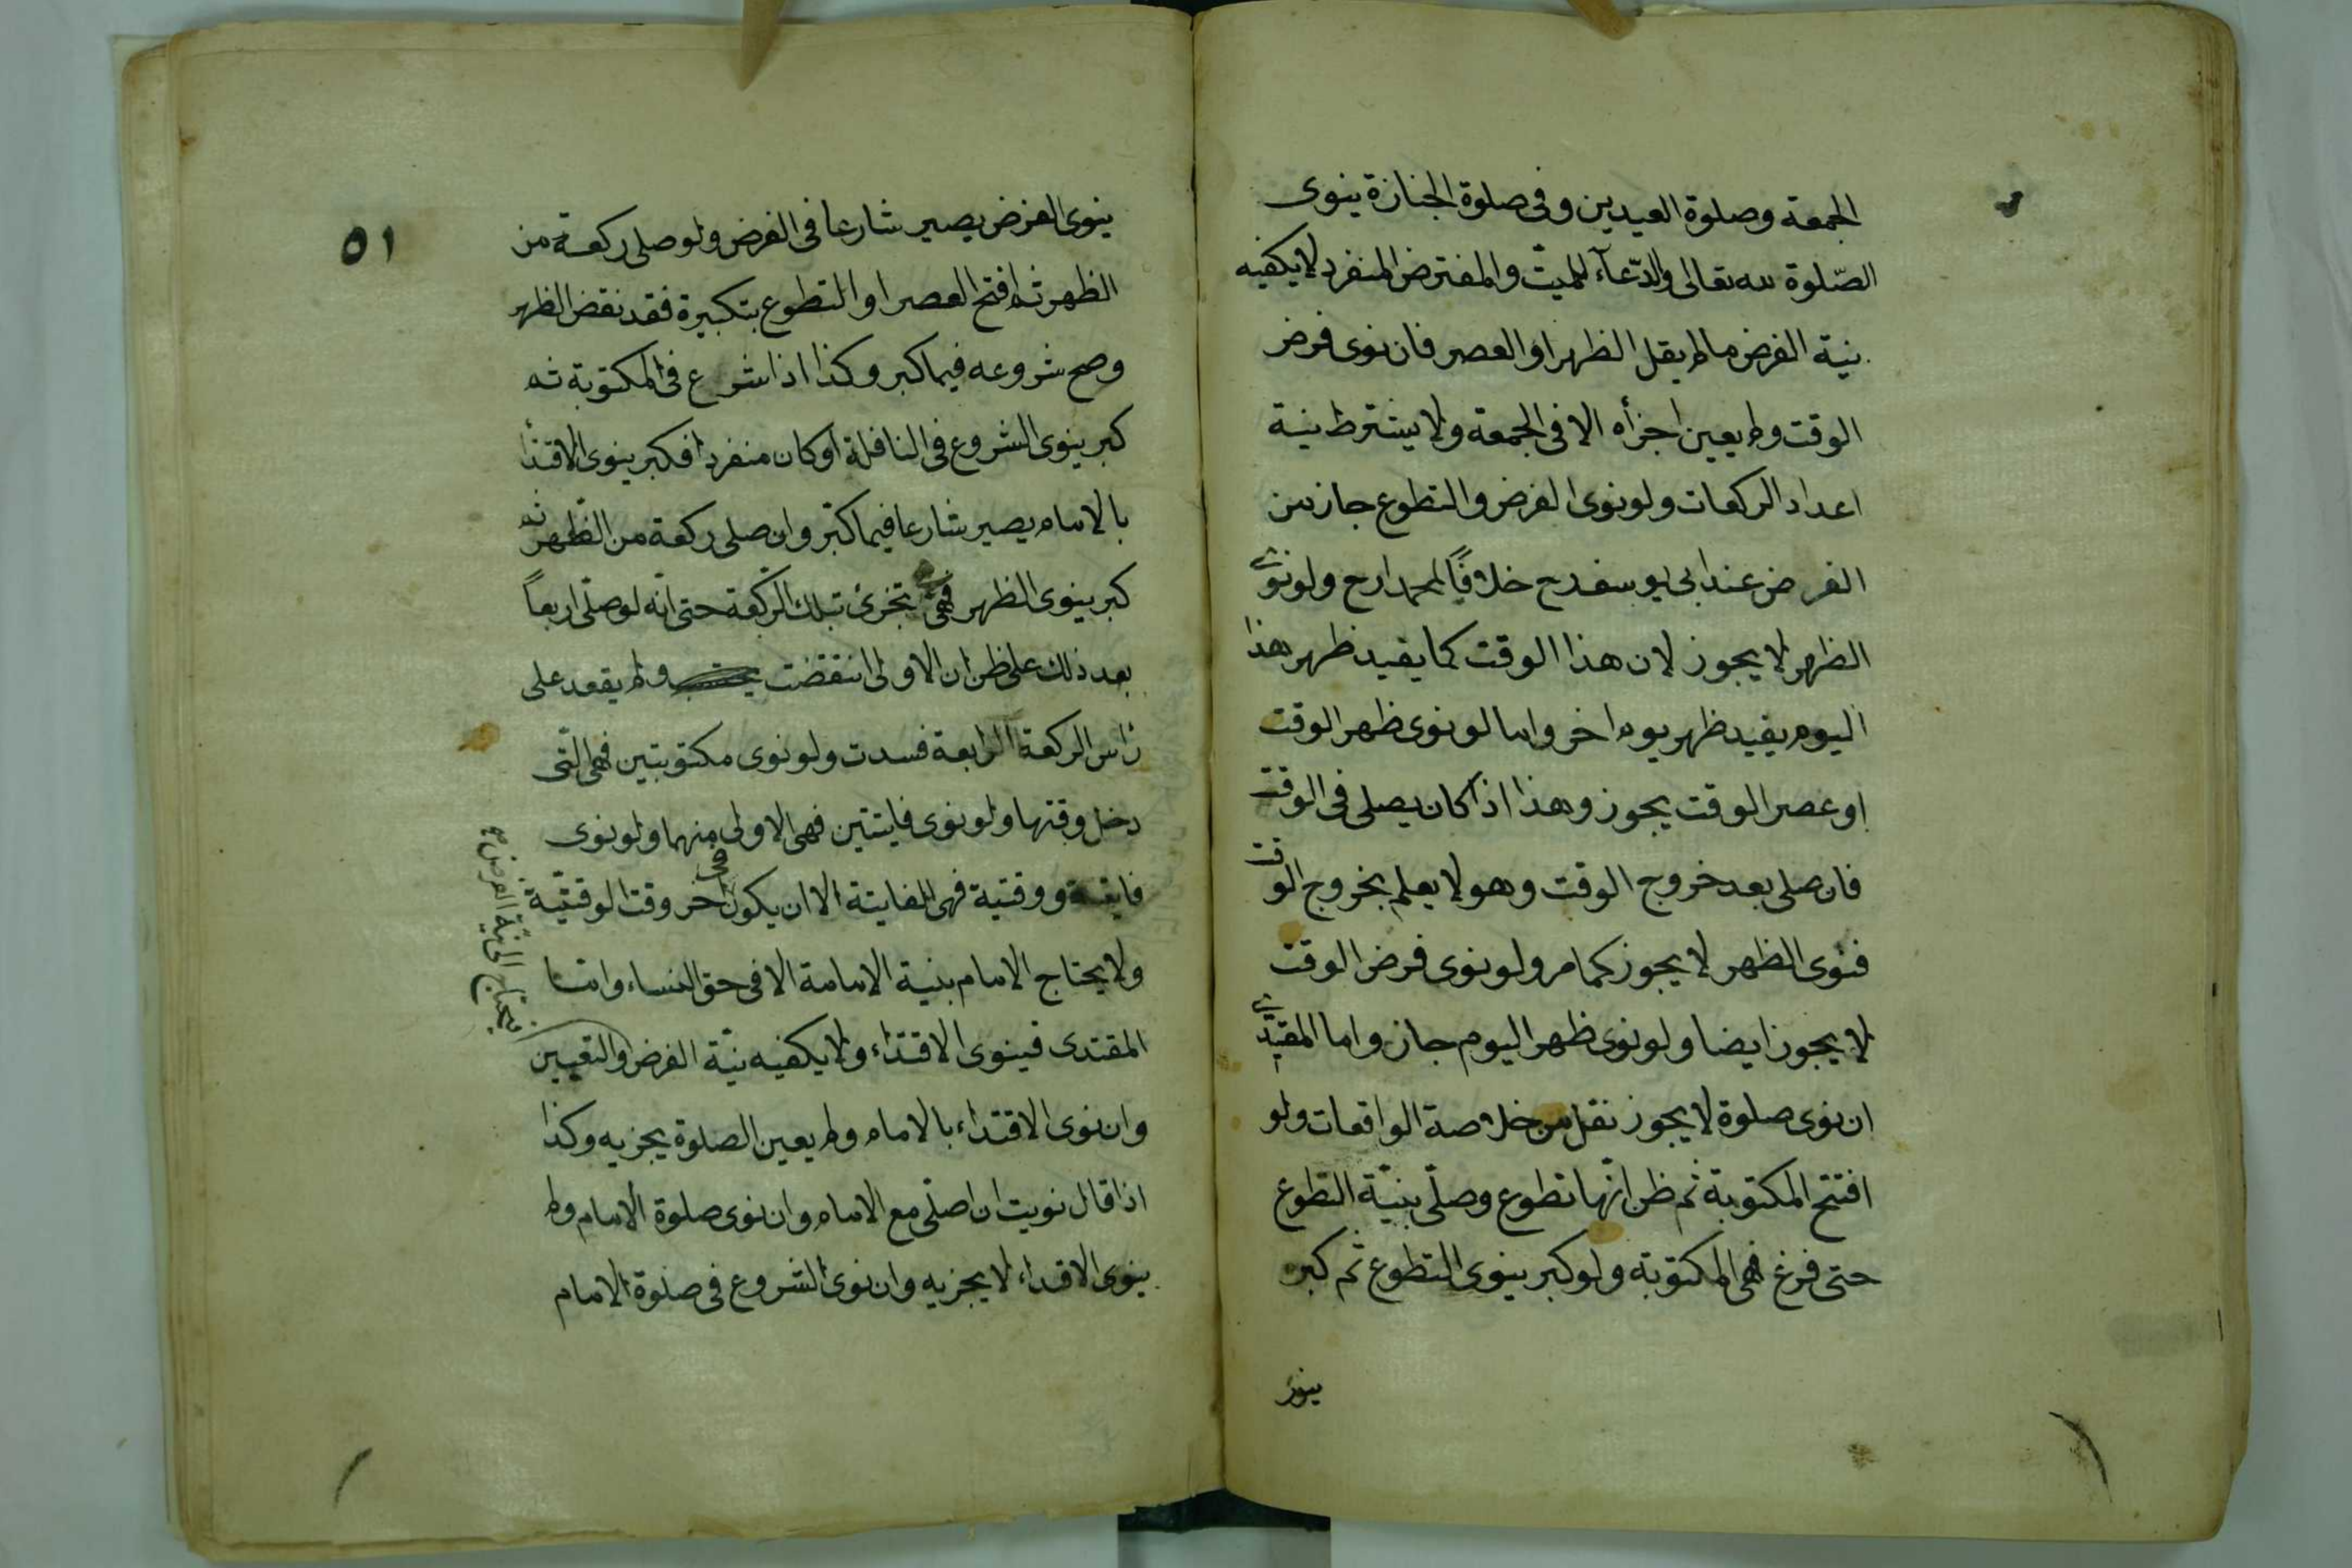 الجمعة وصلوة العيدين وفى صلوة الجنازة ينوى
الصّلوة لله تعالى والدّعاء للميّت والمفترض المنفرد لا يكفيه
نية الفرض ما لم يقل الظهر او العصر فان نوى فرض
الوقت ولم يعين اجزأه الا فى الجمعة ولا يشترط نية
اعداد الركعات ولو نوى الفرض والتطوع جاز من
الفرض عند ابى يوسف رح خلافًا لمحمد رح ولو نوى
الظهر لا يجوز لان هذا الوقت كما يقيد ظهر هذا
اليوم يقيد ظهر يوم اخر واما لو نوى ظهر الوقت
او عصر الوقت يجوز وهذا اذا كان يصلى فى الوقت
فان صلى بعد خروج الوقت وهو لا يعلم بخروج الوقت
فنوى الظهر لا يجوز كما مر ولو نوى فرض الوقت
لا يجوز ايضا ولو نوى ظهر اليوم جاز واما المقيد
ان نوى صلوة لا يجوز نقل من خلاصة الواقعات ولو
افتتح المكتوبة ثم ظن انّها تطوع وصلّى بنيّة التطوع
حتى فرغ فهى المكتوبة ولو كبر ينوى التطوع ثم كبر
ينوى
٥١
ينوى الفرض يصير شارعا فى الفرض ولو صلى ركعة من
الظهر ثم افتح العصر او التطوع بتكبيرة فقد نقض الظهر
وصح شروعه فيما كبر وكذا اذا شرع فى المكتوبة ثم
كبر ينوى الشروع فى النافلة او كان منفردا فكبر ينوى الاقتدأ
بالامام يصير شارعا فيما كبّر وان صلى ركعة من الظهر ثم
كبر ينوى الظهر فهى تجزئ تبلك الركعة حتى انّه لو صلّى اربعاً
بعد ذلك على ظن ان الاولى انتقضت ولم يقعد على
راس الركعة الرابعة فسدت ولو نوى مكتوبتين فهى الّتى
دخل وقتها ولو نوى فايتتين فهى الاولى منهما ولو نوى
فايتة ووقتية فهى للفايتة الا ان يكون فى اخر وقت الوقتيّة
ولا يحتاج الامام بنية الامامة الا فى حق النساء وامّا
المقتدى فينوى الاقتداء ولا يكفيه نيّة الفرض والتعيين
يحتاج الى نيّة الفرض صح
وان نوى الاقتداء بالامام ولم يعين الصلوة يجزيه وكذا
اذا قال نويت ان اصلّى مع الامام وان نوى صلوة الامام ولم
ينوى الاقداء لا يجزيه وان نوى الشروع فى صلوة الامام